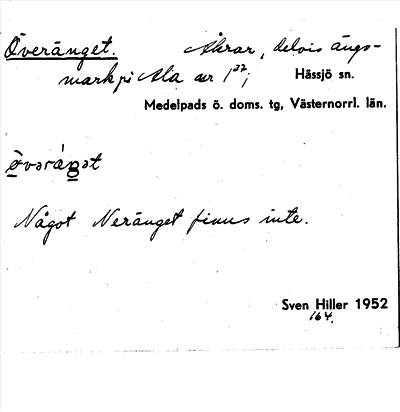 Överänget. Åkrar, delvis ängs-
mark på Ala nr 1²²; Hässjö sn.
Medelpads ö. doms. tg, Västernorrl. län.
Något Neränget finns inte.
Sven Hiller 1952
164.